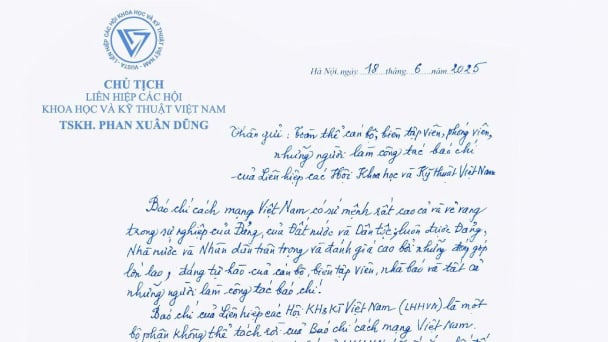 LIÊN HIỆP CÁC HỘI KHOA HỌC VÀ KỸ THUẬT VIỆT NAM
VUSTA
CHỦ TỊCH
LIÊN HIỆP CÁC HỘI
KHOA HỌC VÀ KỸ THUẬT VIỆT NAM
TSKH. PHAN XUÂN DŨNG
Hà Nội, ngày 18 tháng 6 năm 2025
Thân gửi: Toàn thể cán bộ, biên tập viên, phóng viên,
những người làm công tác báo chí
của Liên hiệp các Hội Khoa học và Kỹ thuật Việt Nam
Báo chí cách mạng Việt Nam có sứ mệnh rất cao cả và vẻ vang
trong sự nghiệp của Đảng, của Đất nước và Dân tộc, luôn được Đảng,
Nhà nước và Nhân dân trân trọng và đánh giá cao bởi những đóng góp
lớn lao, đáng tự hào của cán bộ, biên tập viên, nhà báo và tất cả
những người làm công tác báo chí.
Báo chí của Liên hiệp các Hội KH&KT Việt Nam (LHHVN) là một
bộ phận không thể tách rời của Báo chí cách mạng Việt Nam.